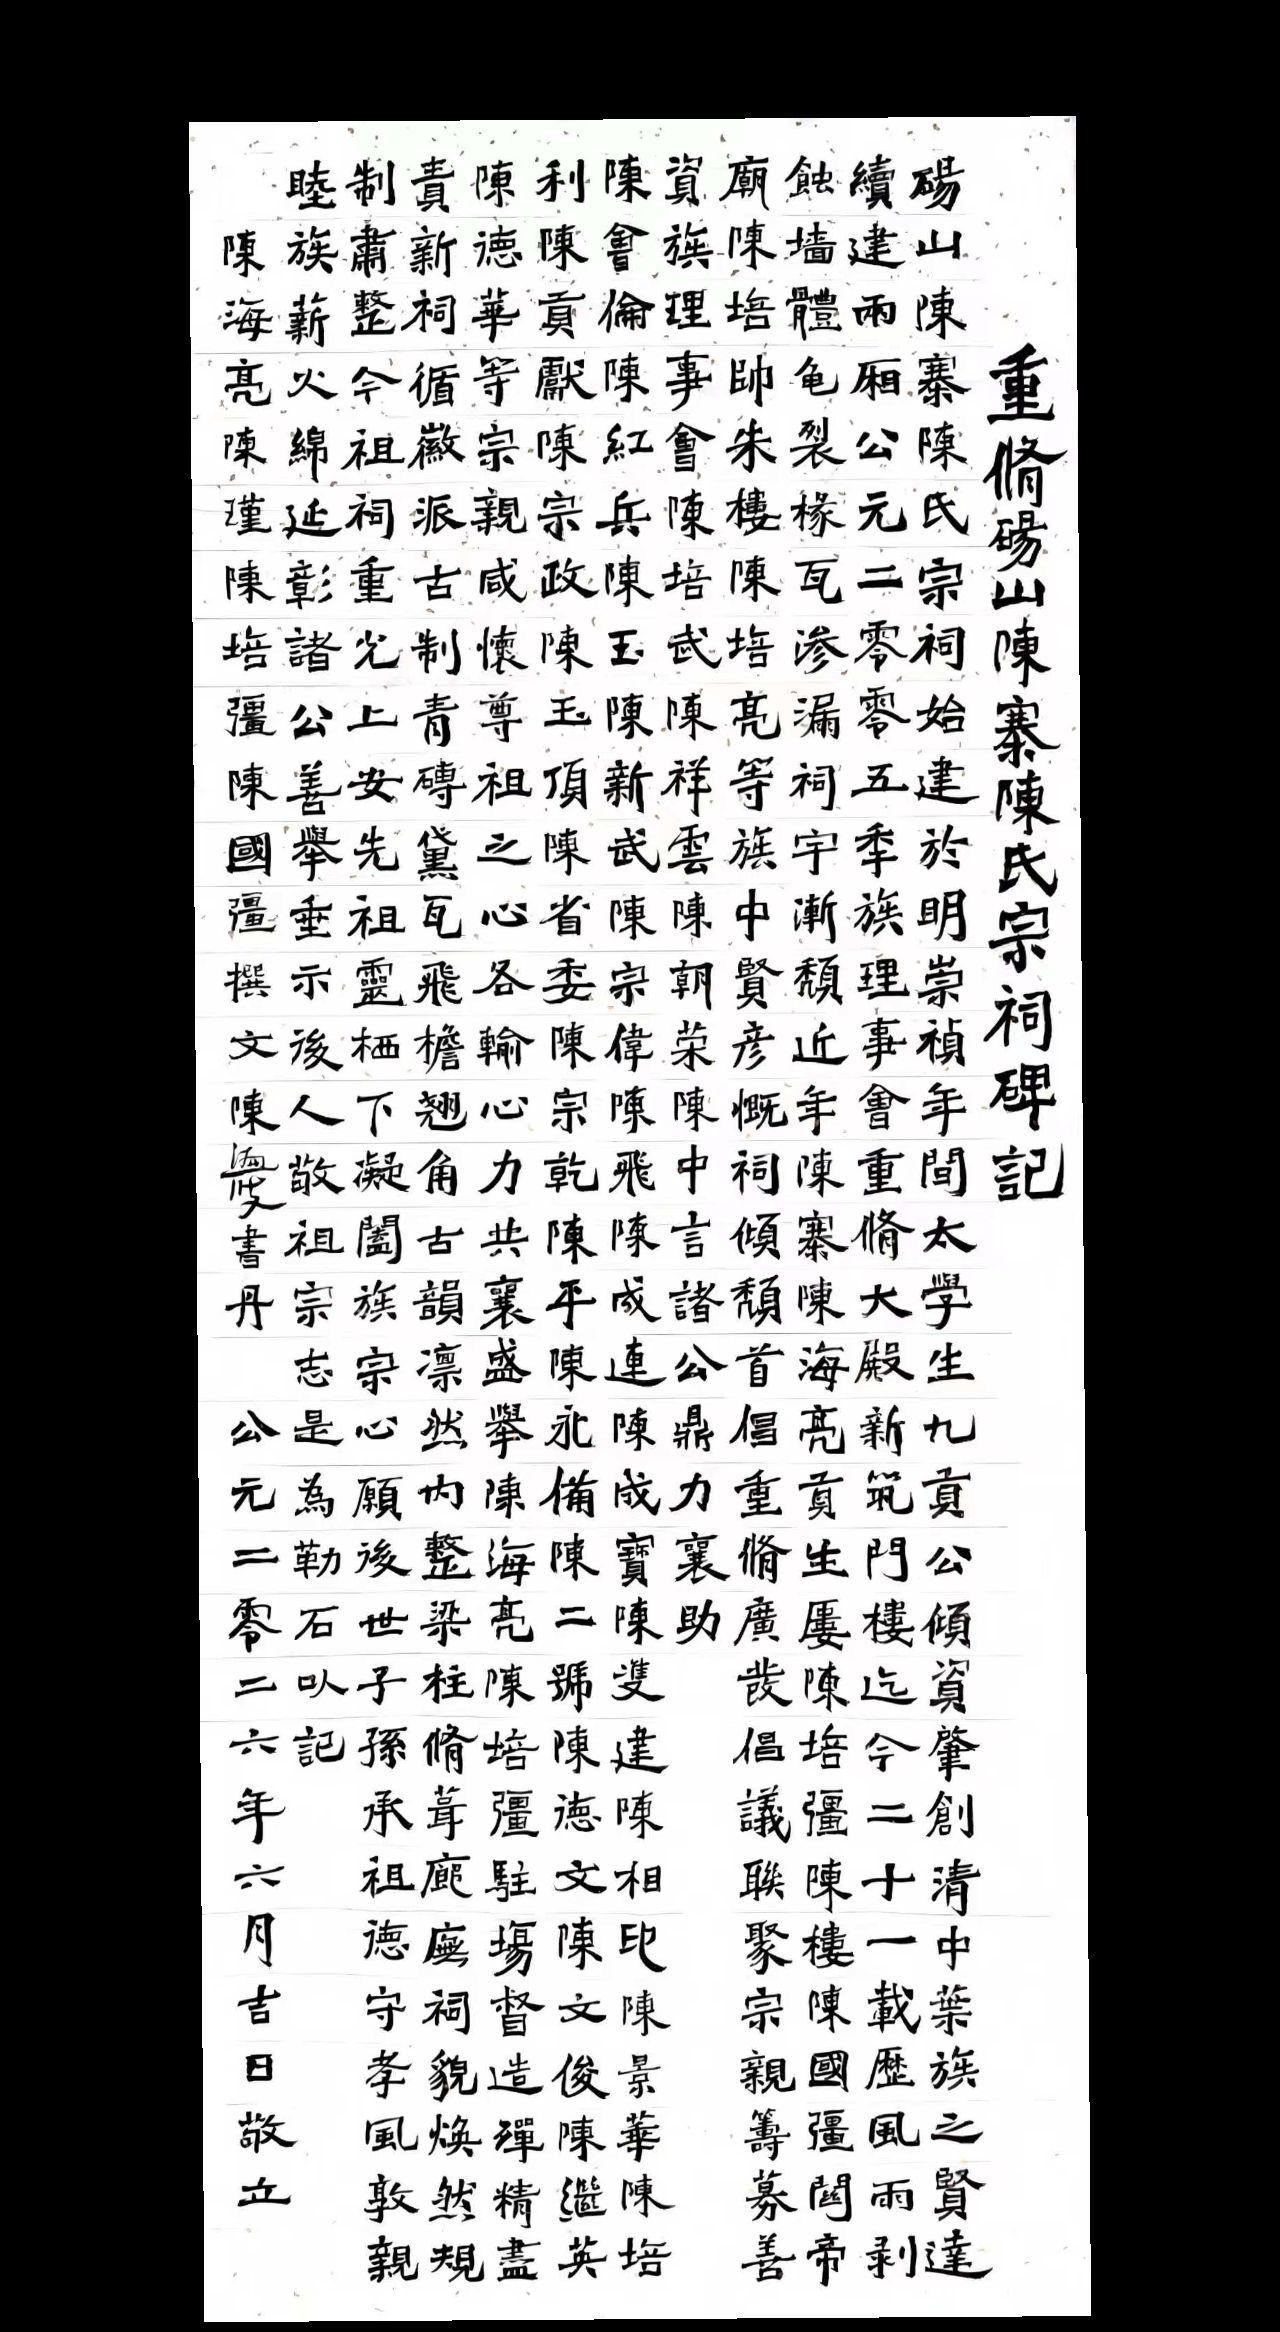 重脩碭山陳寨陳氏宗祠碑記
碭山陳寨陳氏宗祠始建於明崇禎年間太學生九貢公傾資肇創清中葉族之賢達
續建兩厢公元二零零五季族理事會重脩大殿新筑門樓迄今二十一載歷風雨剥
蝕墙體龟裂椽瓦渗漏祠宇漸頽近年陳寨陳海亮貢生屢陳培彊陳樓陳國彊閆帝
廟陳培帥朱樓陳培亮等族中賢彦慨祠傾頽首倡重脩廣發倡議聯聚宗親籌募善
資族理事會陳培武陳祥雲陳朝荣陳中言諸公鼎力襄助
陳會倫陳紅兵陳玉陳新武陳宗偉陳飛陳成連陳成寶陳雙建陳相印陳景華陳培
利陳貢獻陳宗政陳玉頂陳省委陳宗乾陳平陳永備陳二號陳德文陳文俊陳繼英
陳德華等宗親咸懷尊祖之心各輸心力共襄盛舉陳海亮陳培彊駐場督造殫精盡
責新祠循徽派古制青磚黛瓦飛檐翘角古韻凛然内整梁柱脩葺廊廡祠貌焕然規
制肅整今祖祠重光上安先祖靈栖下凝闔族宗心願後世子孫承祖德守孝風敦親
睦族薪火綿延彰諸公善舉垂示後人敬祖宗志是為勒石以記
陳海亮陳瑾陳培彊陳國彊撰文陳書丹 公元二零二六年六月吉日敬立